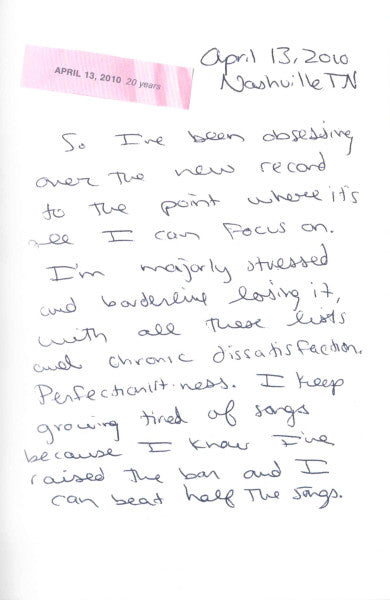 APRIL 13, 2010 20 years
April 13, 2010
Nashville TN
So I've been obsessing
over the new record
to the point where it's
all I can focus on.
I'm majorly stressed
and borderline losing it,
with all these lists
and chronic dissatisfaction.
Perfectionist-ness. I keep
growing tired of songs
because I know I've
raised the bar and I
can beat half the songs.